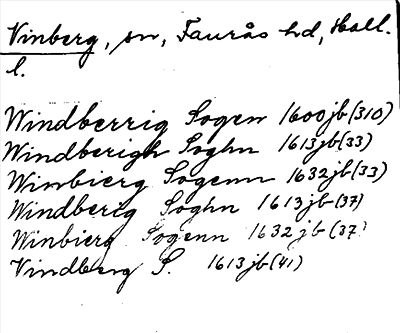 Vinberg, sn, Faurås hd, Hall.
l.
Windberrig Sogen 1600jb(310)
Windberigh Soghn 1613jb(33)
Wimbierg Sogenn 1632jb(33)
Windberig Soghn 1613jb(37)
Winbierg Sogenn 1632jb(37)
Vindberg S. 1613jb(41)